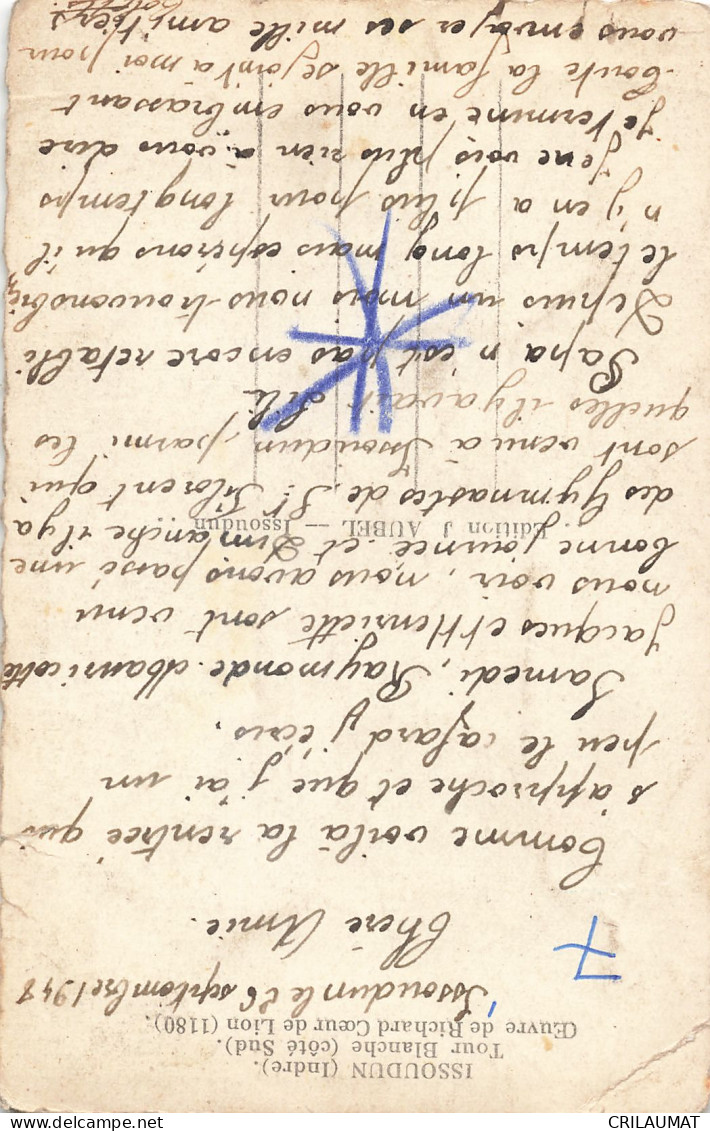 ISSOUDUN (Indre).
Tour Blanche (côté Sud).
Œuvre de Richard Cœur de Lion (1180).
Issoudun le 26 septembre 1948
7
Chère Amie.
Comme voilà la rentrée qui
s'approche et que j'ai un
peu le cafard j'écris.
Samedi, Raymonde Mauricette
Jacques et Henriette sont venu
nous voir, nous avons passé une
bonne journée et Dimanche il y a
Edition J. AUBEL — Issoudun
des Gymnastes de St Florent qui
sont venu à Issoudun, parmi les
quelles il y avait Lili
Papa n'est pas encore rétabli
Depuis un mois nous trouvons bien
le temps long mais espérons qu'il
n'y en a plus pour longtemps
Je ne vois plus rien à vous dire
Je termine en vous embrassant
toute la famille se joint à moi pour
vous envoyer ses mille amitiers
Colette
CRILAUMAT